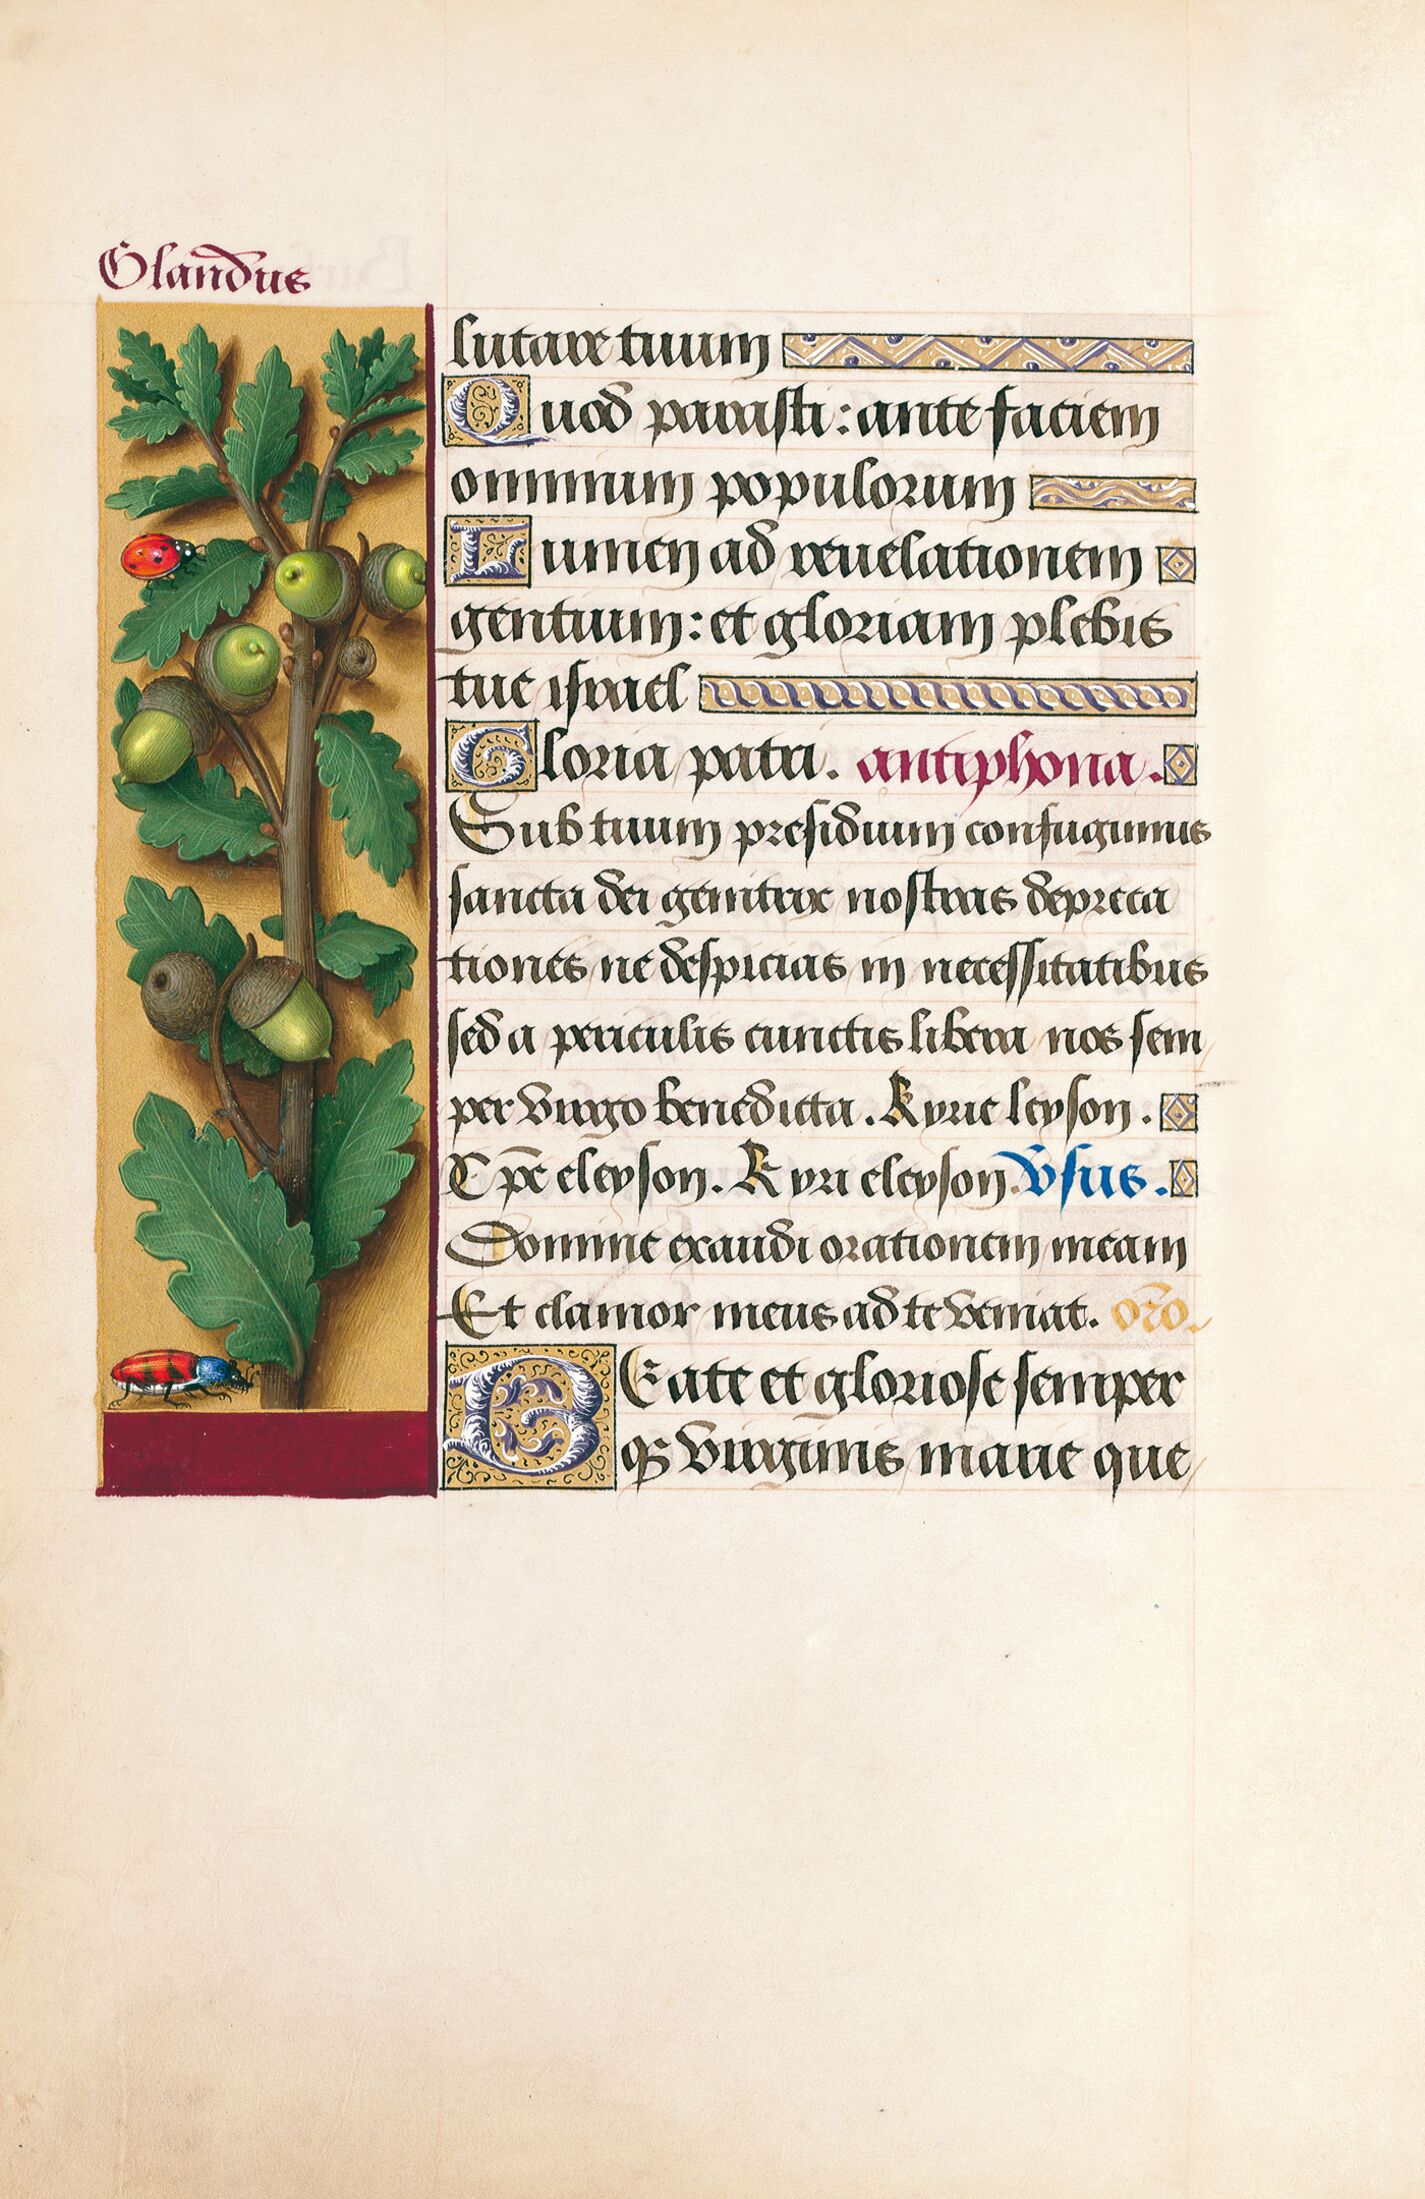 Glandus
lutare tuum
Quod parasti: ante faciem
omnium populorum
Lumen ad reuelationem
gentium: et gloriam plebis
tue israel
Gloria patri. antiphona.
Sub tuum presidium confugimus
sancta dei genitrix nostras depreca
tiones ne despicias in necessitatibus
sed a periculis cunctis libera nos sem
per virgo benedicta. Kyrie leyson.
Xp̄e eleyson. Kyri eleyson. v̄sus.
Domine exaudi orationem meam
Et clamor meus ad te veniat. or̄o.
BEate et gloriose semper
qȝ virginis marie que